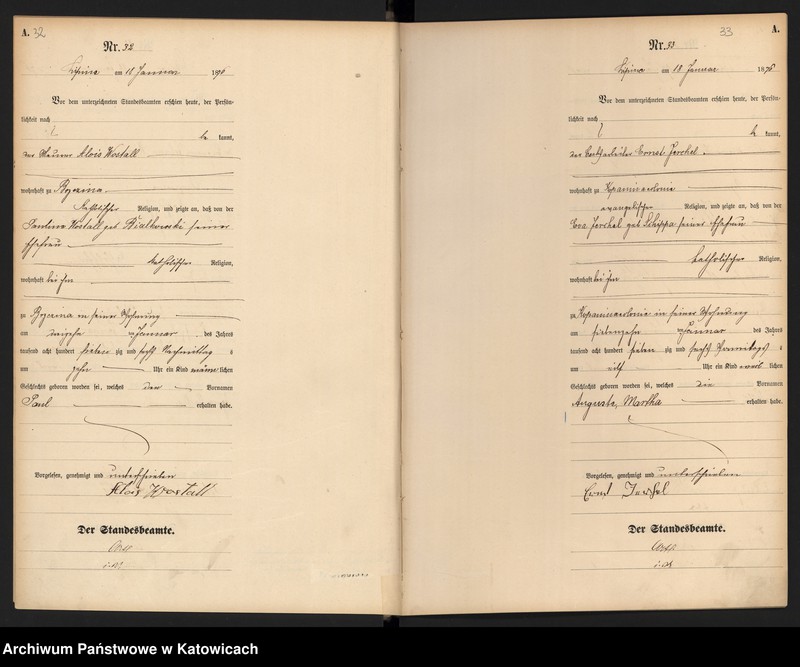 A. 32
Nr. 32
Lipine am 18 Januar 1876
Vor dem unterzeichneten Standesbeamten erschien heute, der Persön-
lichkeit nach
be kannt,
der Maurer Alois Wostall
wohnhaft zu
katholischer Religion, und zeigte an, daß von der
Paulina Wostall geb Bialkowski seiner
Ehefrau
katholischer Religion,
wohnhaft bei ihm
zu in seiner Wohnung
am Januar des Jahres
tausend acht hundert siebenzig und sechs Nachmittag s
um zehn Uhr ein Kind männlichen
Geschlechts geboren worden sei, welches den Vornamen
Paul erhalten habe.
Vorgelesen, genehmigt und unterschrieben
Alois Wostall
Der Standesbeamte.
33 A.
Nr. 33
Lipine am 18 Januar 1876
Vor dem unterzeichneten Standesbeamten erschien heute, der Persön-
lichkeit nach
be kannt,
der Ernst Jerchel
wohnhaft zu
evangelischer Religion, und zeigte an, daß von der
Eva Jerchel geb seiner Ehefrau
katholischer Religion,
wohnhaft bei ihm
zu in seiner Wohnung
am siebenzehn Januar des Jahres
tausend acht hundert sieben zig und sechs Vormittags
um elf Uhr ein Kind weiblichen
Geschlechts geboren worden sei, welches die Vornamen
Auguste, Martha erhalten habe.
Vorgelesen, genehmigt und unterschrieben
Ernst Jerchel
Der Standesbeamte.
Archiwum Państwowe w Katowicach